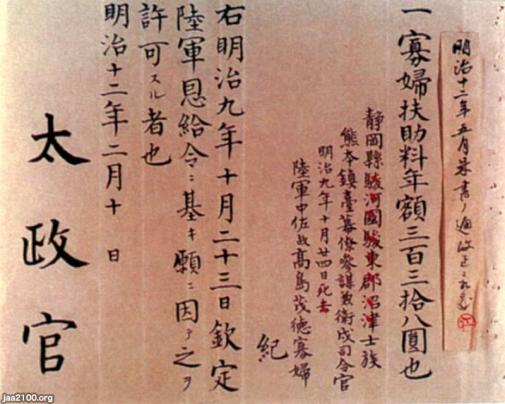 明治十二年五月朱書ノ通改正
一寡婦扶助料年額三百三拾八圓也
静岡縣駿河國駿東郡沼津士族
熊本鎮臺幕僚參謀兼衛戍司令官
明治九年十月廿四日死去
陸軍中佐故高島茂徳寡婦
紀
右明治九年十月二十三日欽定
陸軍恩給令ニ基キ願ニ因テ之ヲ
許可スル者也
明治十二年二月十 日
太政官
jaa2100.org